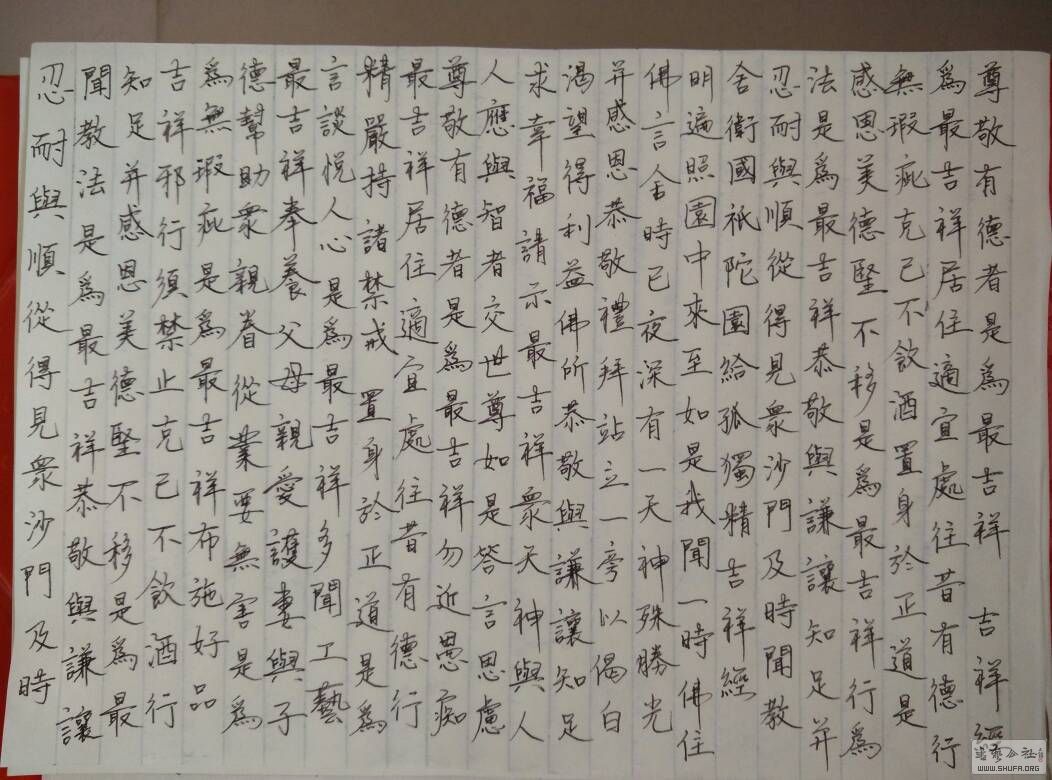 尊敬有德者是爲最吉祥 吉祥經
爲最吉祥居住適宜處往昔有德行
無瑕疵克己不飲酒置身於正道是
感恩美德堅不移是爲最吉祥行爲
法是爲最吉祥恭敬與謙讓知足并
忍耐與順從得見衆沙門及時聞教
舍衛國祇陀園給孤獨精吉祥經
明遍照園中來至如是我聞一時佛住
佛言舍時已夜深有一天神殊勝光
并感恩恭敬禮拜站立一旁以偈白
渴望得利益佛所恭敬與謙讓知足
求幸福請示最吉祥衆天神與人
人應與智者交世尊如是答言思慮
尊敬有德者是爲最吉祥勿近愚痴
最吉祥居住適宜處往昔有德行
精嚴持諸禁戒 置身於正道是爲
言談悅人心是爲最吉祥多聞工藝
最吉祥奉養父母親愛護妻與子
德幫助衆親眷從業要無害是爲
爲無瑕疵是爲最吉祥布施好品
吉祥邪行須禁止克己不飲酒行
知足并感恩美德堅不移是爲最
聞教法是爲最吉祥恭敬與謙讓
忍耐與順從得見衆沙門及時
WWW.SHUFA.ORG